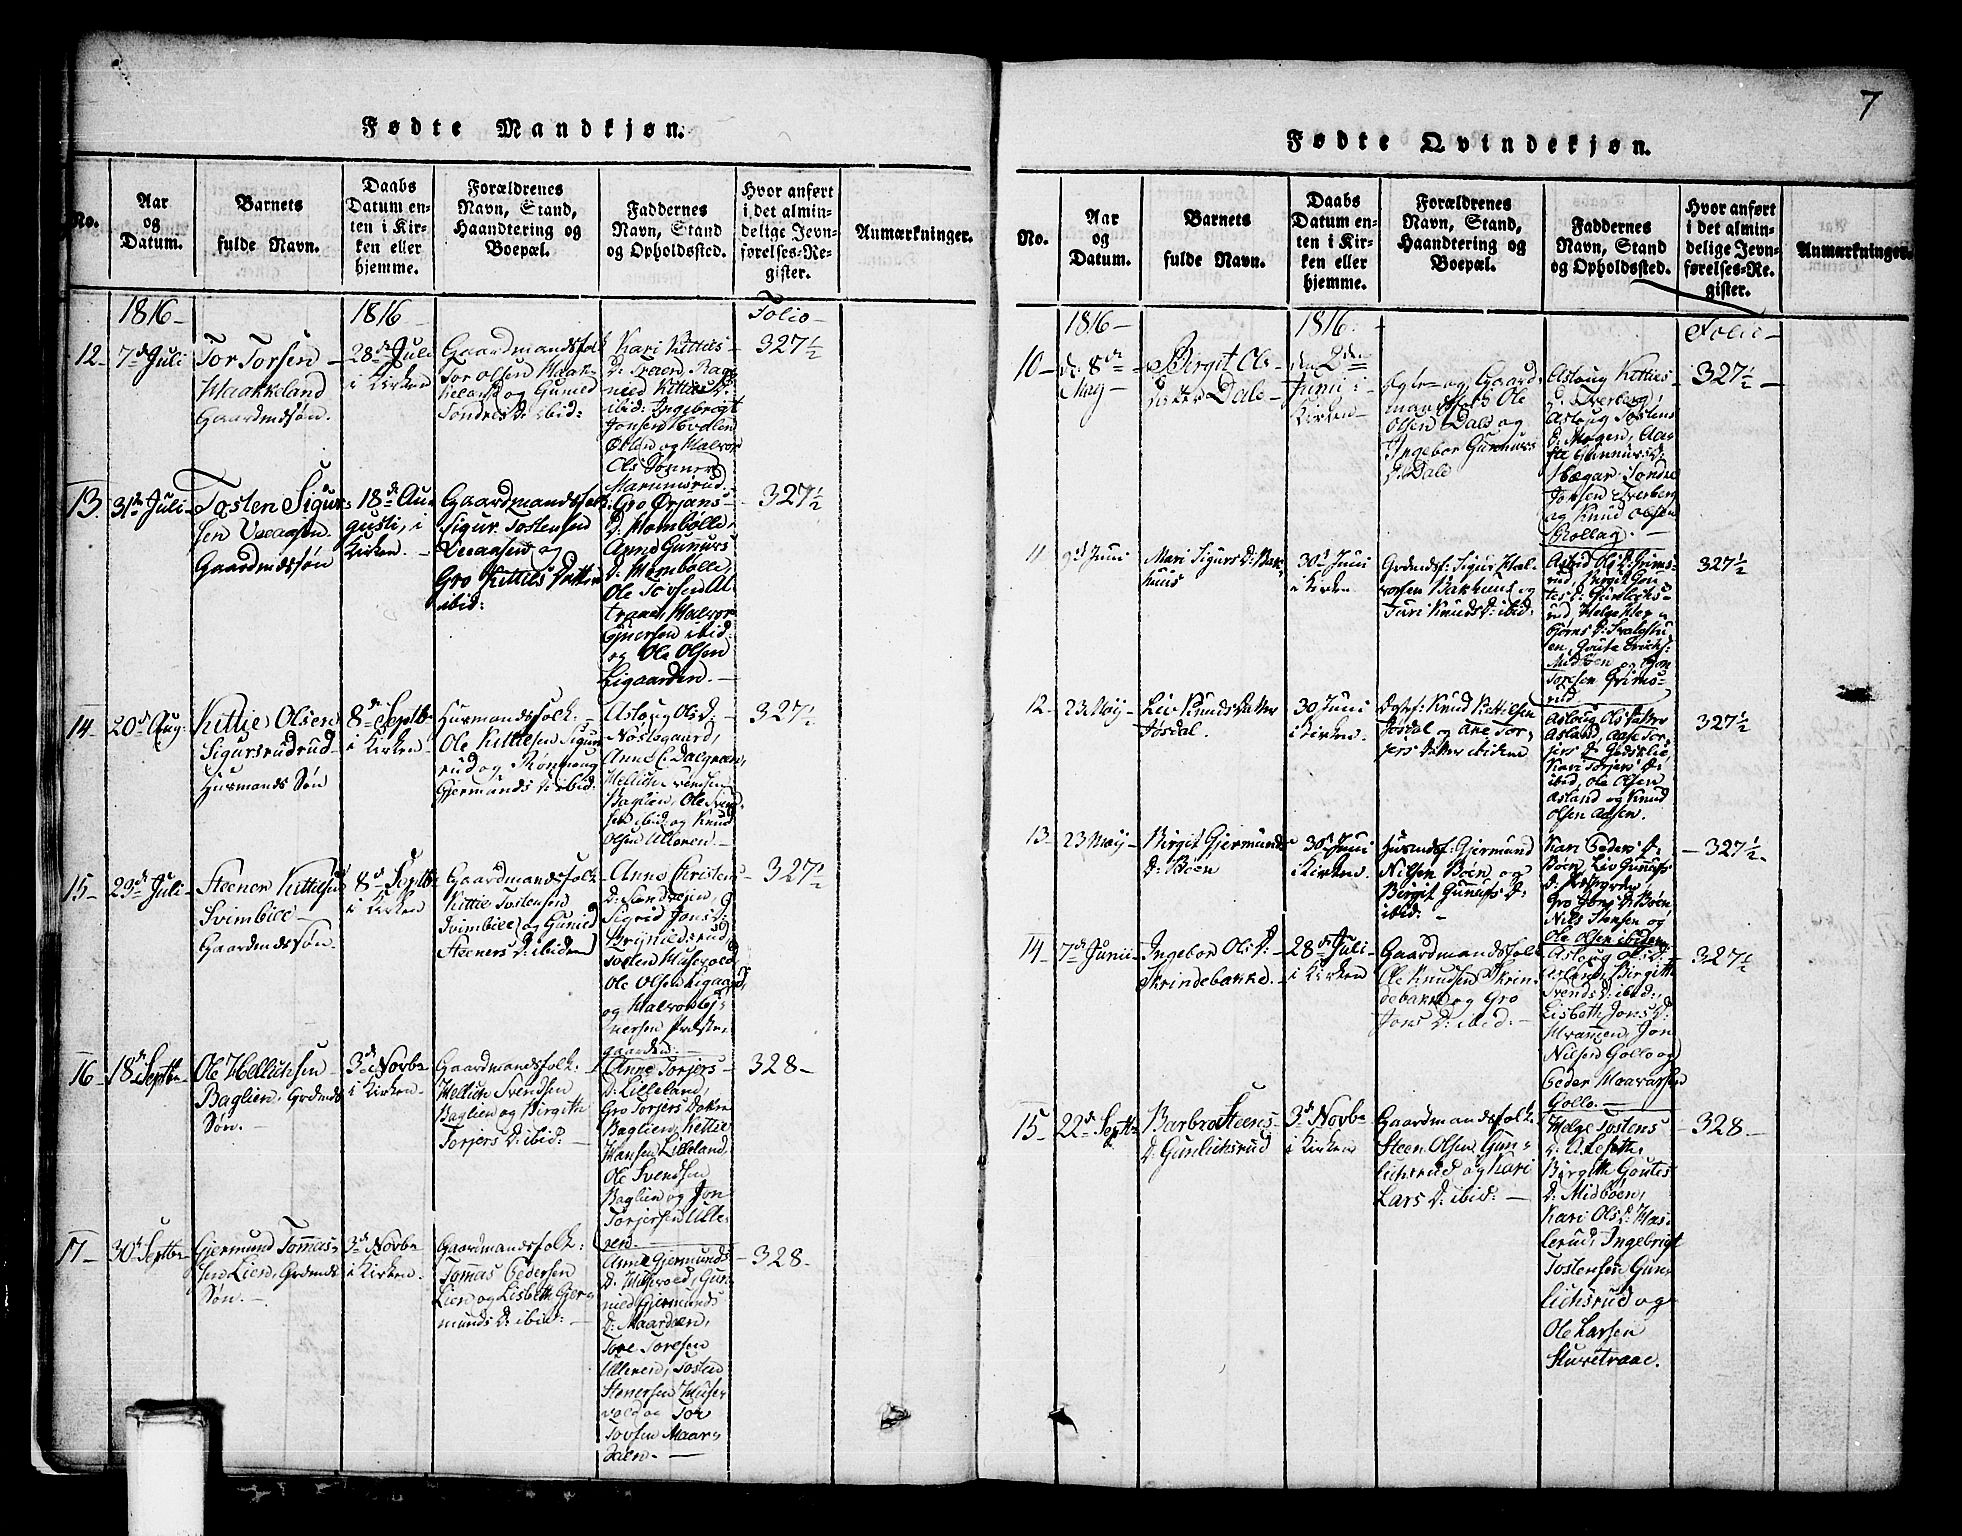 7
Fødte Mandkjøn.
No.
Aar
og
Datum.
Barnets
fulde Navn.
Daabs
Datum en-
ten i Kir-
ken eller
hjemme.
Forældrenes
Navn, Stand,
Haandtering og
Boepæl.
Faddernes
Navn, Stand
og Opholdssted.
Hvor anført
i det almin-
delige Jevn-
førelses-Re-
gister.
Anmærkninger.
1816
1816
Folio
12
7d Juli
Tor Torsen
Haakkland
Gaardmdssøn.
28d Juli
i Kirken
Gaardmandsfolk
Tor Olsen Haak-
keland og Gunild
Tondres D: ibid:
Kari Kitties
D: Traaen,
nied Kitties D:
ibid: Ingebrigt
Jonsen
og Halvor
Ols Sønner
327½
13.
31te Juli
Tosten Sigurs-
sen
Gaardmdssøn
18d Au-
gusti, i
Kirken.
Gaardmandsfolk
Sigur Tostensen
og
Gro Kittils Datter
ibid:
Gro Ørjans
D: Mombølle,
Anne Gunurs
D: Mombølle
Ole Torsen
Halvor
Ejnersen ibid:
og Ole Olsen
Ligaarden.
327½
14
20d Aug
Kittie Olsen
Sigursrudrud
Husmands Søn
8d Septbr
i Kirken
Husmandsfolk:
Ole Kittiesen Sigurs-
rud og Rønnoug
Gjermands D: ibid:
Aslaug Ols D
Nøstegaard,
Anne
Hellich Svensen
Baglien, Ole Svend-
sen ibid: og Knud
Olsen Ulleren.
327½
15
29d Juli
Steener Kittiesen
Svimbice
Gaardmdssøn.
8d Septbr
i Kirken
Gaardmandsfolk
Kittie Tostensen
Svimbice og Gunild
Steeners D: ibidem
Anne Christens
D:
Sigrid Jons D:
Brynildsrud
Tosten Husevold,
Ole Olsen Ligaard,
og Halvor Ej-
nersen Præste-
gaarden.
327½
16
18d Septbr
Ole Hellichsen
Baglien, Grdmds
Søn.
3d Novbr
i Kirken
Gaardmandsfolk:
Hellich Svendsen
Baglien og Birgith
Torjers D: ibid:
Anne Torjers
D: Lilleland,
Gro Torjers Dotter
Baglien, Kettie
Hansen Lilleland,
Ole Svendsen
Baglien og Jon
Torjersen Ulle-
ren.
328
17
30d Septbr
Gjermund Tomas-
sen Lien, Grdmds
Søn.
3d Novbr
i Kirken.
Gaardmandsfolk:
Tomas Peders­en
Lien og Lisbeth Gjer-
munds D: ibid:
Anne Gjermunds
D: Husevold, Gun-
nied Gjermunds
D: Maardalen,
Tore Toresen
Ulleren, Tosten
Stenersen Huse-
vold og Tor
Torsen Maar-
dalen.
328
Fødte Qvindekjøn.
No.
Aar
og
Datum.
Barnets
fulde Navn.
Daabs
Datum en-
ten i Kir-
ken eller
hjemme.
Forældrenes
Navn, Stand,
Haandtering og
Boepæl.
Faddernes
Navn, Stand
og Opholdssted.
Hvor anført
i det almin-
delige Jevn-
førelses-Re-
gister.
Anmærkninger.
1816
1816
Folio
10
d. 8de
May
Birgit Ols
Datter Dale
den 2den
Juni i
Kirken
Ægte- og Gaard-
mandsfolk Ole
Olsen Dale og
Ingebor Gunnurs
D: Dale
Aslaug Kitties
D: Sverberg,
Aslaug Tostens
D: Mogen, Aas-
Gunnurs D:
Hægar, Tondre
Jonsen Sverberg
og Knud Olsen
Rollag.
327½
11
9d Juni
Mari Sigurs D: Bak-
huus
30d Juni
i Kirken
Grdmdsf: Sigur Hal-
vorsen Bakhuus og
Turi Knuds D: ibid:
Astrid Ols D: Grims-
rud, Birgit Gou-
tes D: Gunlechs-
rud, Helge
Bjørns D:
Goute Erichs:
Midbøen og Jon
Toresen Grims-
rud
327½
12
23 May
Liv Knuds Datter
Jøsdal.
30 Juni
i Kirken.
Knud Kittilsen
Josdal og Ane Tor-
jers Datter ibidem
Aslaug Ols Datter
Asland, Aase Tor-
jers D:
Kari Torjers D:
ibid, Ole Olsen
Asland og Knud
Olsen Aasen.
327½
13
23 May
Birgit Gjermunds
D: Boen
30d Juni
i Kirken
Husmdsf: Gjermund
Nilsen Boen og
Birgit Gunulfs D:
ibid:
Kari Peders D:
Boen, Liv Gunulfs
D:
Gro Jons D: Boen
Nils Stensen og
Ole Olsen ibidem.
327½
14
7d Junii
Ingebor Ols D:
Skrindebakke.
28d Juli
i Kirken
Gaardmandsfolk
Ole Knudsen Skrin-
debakk og Gro
Jons D: ibid:
Aslaug Ols D:
Asland, Birgith
Svends D: ibid:,
Lisbeth Jons D:
Hvammen, Jon
Nilsen Gollo og
Peder Haavarsen
Gollo.
327½
15
22d Septbr
Barbro Steens
D: Gunlichsrud
3d Novbr
i Kirken
Gaardmandsfolk
Steen Olsen Gun-
lichsrud og Kari
Lars D: ibid:
Helge Tostens
D:
Birgith Goutes
D: Midbøen,
Kari Ols D: Has-
lerud, Ingebrigt
Tostensen Gun-
lichsrud og
Ole Larsen
Sturetraae.
328